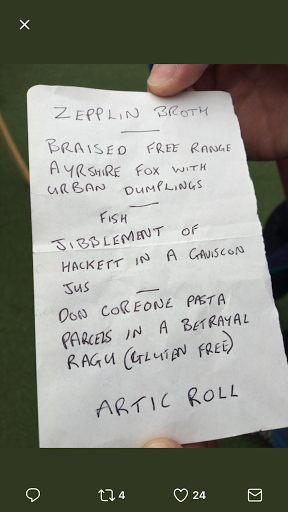 ZEPPLIN BROTH
BRAISED FREE RANGE
AYRSHIRE FOX WITH
URBAN DUMPLINGS
FISH
JIBBLEMENT OF
HACKETT IN A GAVISCON
JUS
DON COREONE PASTA
PARCELS IN A BETRAYAL
RAGU (GLUTEN FREE)
ARTIC ROLL
4
24